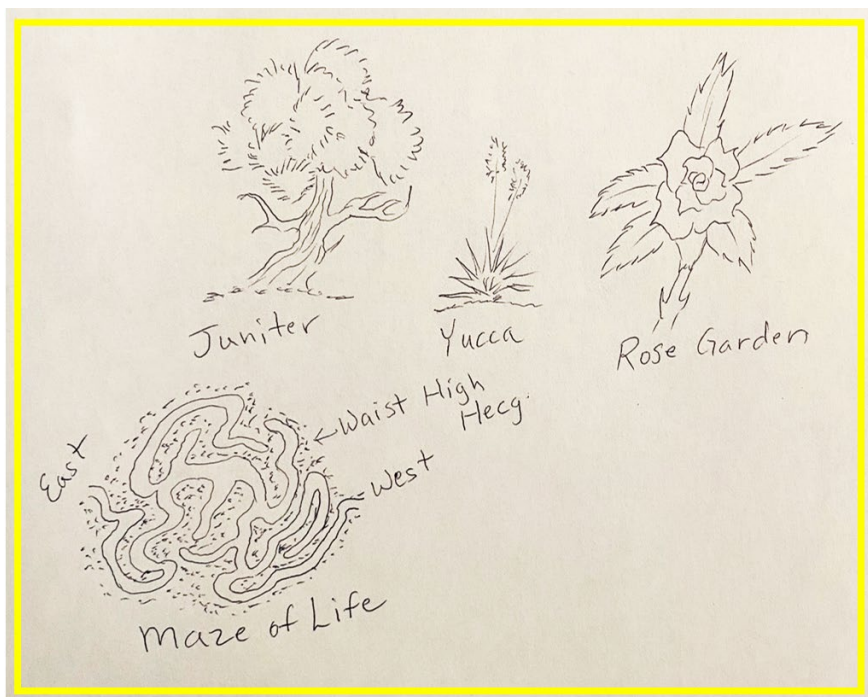 Juniter
Yucca
Rose Garden
←Waist High
Hecg.
East
West
Maze of Life